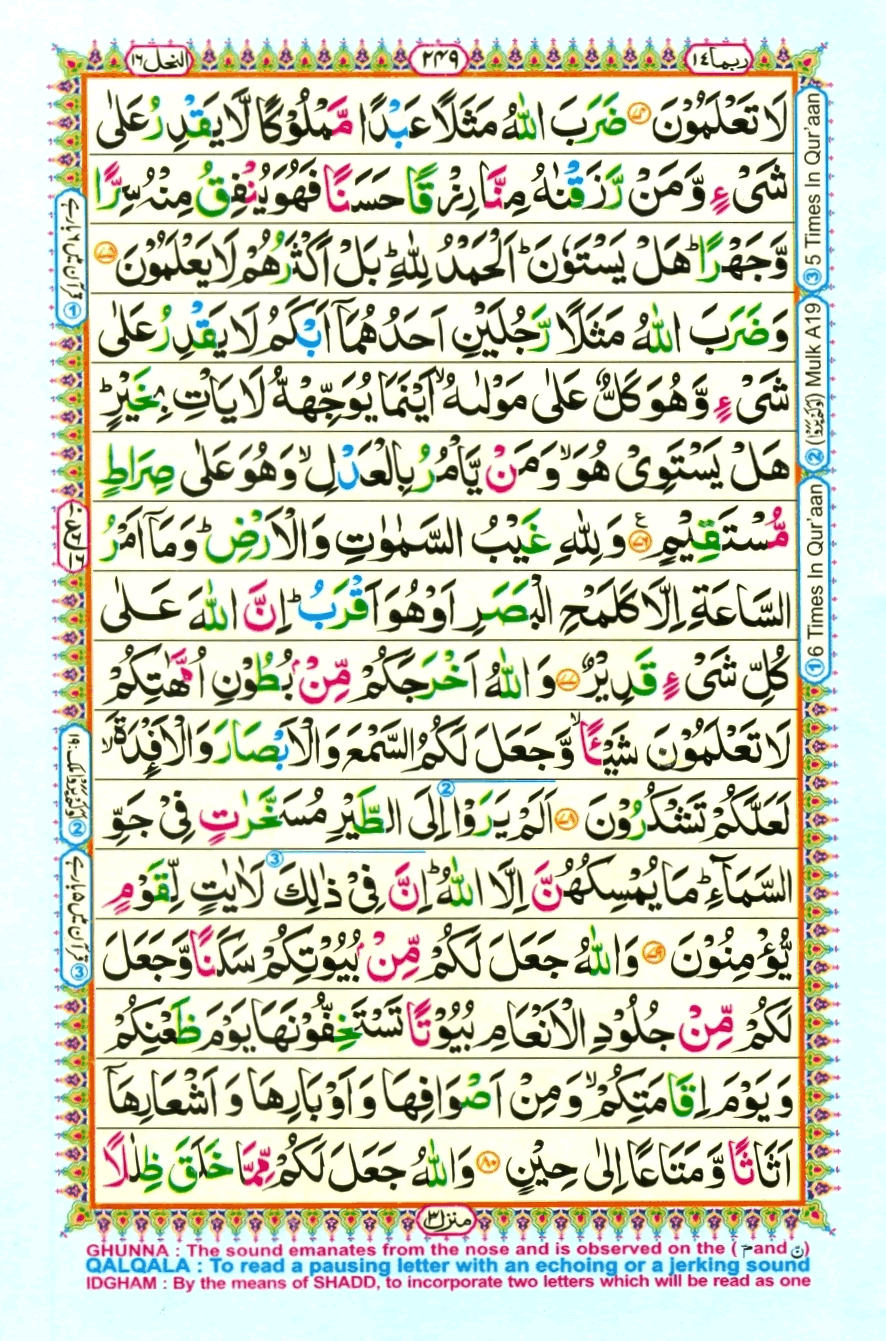 ربما ١٤
٢٤٩
النحل ١٦
لَا تَعْلَمُوْنَ ﴿۷۴﴾ ضَرَبَ اللّٰهُ مَثَلًا عَبْدًا مَّمْلُوْكًا لَّا يَقْدِرُ عَلٰى
شَىْءٍ وَّمَنْ رَّزَقْنٰهُ مِنَّا رِزْقًا حَسَنًا فَهُوَ يُنْفِقُ مِنْهُ سِرًّا
وَّجَهْرًا ؕ هَلْ يَسْتَوٗنَ ؕ اَلْحَمْدُ لِلّٰهِ ؕ بَلْ اَكْثَرُهُمْ لَا يَعْلَمُوْنَ ﴿۷۵﴾
وَضَرَبَ اللّٰهُ مَثَلًا رَّجُلَيْنِ اَحَدُهُمَاۤ اَبْكَمُ لَا يَقْدِرُ عَلٰى
شَىْءٍ وَّهُوَ كَلٌّ عَلٰى مَوْلٰىهُ ۙ اَيْنَمَا يُوَجِّهْهُّ لَا يَاْتِ بِخَيْرٍ ؕ
هَلْ يَسْتَوِىْ هُوَ ۙ وَمَنْ يَّاْمُرُ بِالْعَدْلِ ۙ وَهُوَ عَلٰى صِرَاطٍ
مُّسْتَقِيْمٍ ﴿۷۶﴾ وَلِلّٰهِ غَيْبُ السَّمٰوٰتِ وَالْاَرْضِ ؕ وَمَاۤ اَمْرُ
السَّاعَةِ اِلَّا كَلَمْحِ الْبَصَرِ اَوْ هُوَ اَقْرَبُ ؕ اِنَّ اللّٰهَ عَلٰى
كُلِّ شَىْءٍ قَدِيْرٌ ﴿۷۷﴾ وَاللّٰهُ اَخْرَجَكُمْ مِّنْۢ بُطُوْنِ اُمَّهٰتِكُمْ
لَا تَعْلَمُوْنَ شَيْـًٔا ۙ وَّجَعَلَ لَكُمُ السَّمْعَ وَالْاَبْصَارَ وَالْاَفْـِٕدَةَ ۙ
لَعَلَّكُمْ تَشْكُرُوْنَ ﴿۷۸﴾ اَلَمْ يَرَوْا اِلَى الطَّيْرِ مُسَخَّرٰتٍ فِىْ جَوِّ
السَّمَآءِ ؕ مَا يُمْسِكُهُنَّ اِلَّا اللّٰهُ ؕ اِنَّ فِىْ ذٰلِكَ لَاٰيٰتٍ لِّقَوْمٍ
يُّؤْمِنُوْنَ ﴿۷۹﴾ وَاللّٰهُ جَعَلَ لَكُمْ مِّنْۢ بُيُوْتِكُمْ سَكَنًا وَّجَعَلَ
لَكُمْ مِّنْ جُلُوْدِ الْاَنْعَامِ بُيُوْتًا تَسْتَخِفُّوْنَهَا يَوْمَ ظَعْنِكُمْ
وَيَوْمَ اِقَامَتِكُمْ ۙ وَمِنْ اَصْوَافِهَا وَاَوْبَارِهَا وَاَشْعَارِهَاۤ
اَثَاثًا وَّمَتَاعًا اِلٰى حِيْنٍ ﴿۸۰﴾ وَاللّٰهُ جَعَلَ لَكُمْ مِّمَّا خَلَقَ ظِلٰلًا
③ 5 Times In Qur'aan
② (اَوَلَمْ يَرَوْا) Mulk A19
① 6 Times In Qur'aan
قرآن میں ۶ بار ہے ①
② اَوَلَمْ يَرَوْا ملك: ۱۹
قرآن میں ۵ بار ہے ③
منزل ٣
GHUNNA : The sound emanates from the nose and is observed on the (م and ن)
QALQALA : To read a pausing letter with an echoing or a jerking sound
IDGHAM : By the means of SHADD, to incorporate two letters which will be read as one